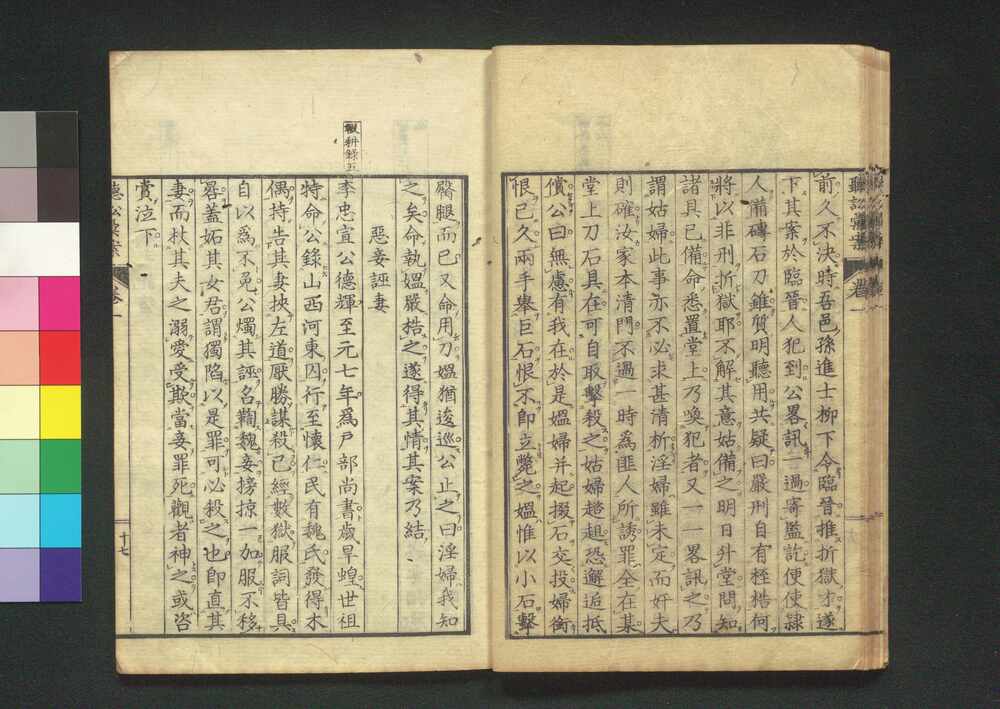 前久不決時吾邑孫進士柳下令臨晉推折獄才遂
下其案於臨晉人犯到公畧訊一過寄監訖使使隸
人備磚石刀錐質明聽用共疑曰嚴刑自有桎梏何
將以非刑折獄耶不解其意姑備之明日升堂問知
諸具已備命悉置堂上乃喚犯者又一一畧訊之乃
謂姑婦此事亦不必求甚清析淫婦雖未定而奸夫
則確汝家本清門不過一時為匪人所誘罪全在某
堂上刀石具在可自取擊殺之姑婦趦趄恐邂逅抵
償公曰無慮有我在於是媼婦并起掇石交投婦銜
恨已久兩手舉巨石恨不即立斃之媼惟以小石擊
臀腿而已又命用刀媼猶逡巡公止之曰淫婦我知
之矣命執媼嚴梏之遂得其情其案乃結
惡妾誣妻
輟耕錄五
李忠宣公德輝至元七年為戶部尚書歲旱蝗世祖
特命公錄山西河東囚行至懷仁民有魏氏發得木
偶持告其妻挾左道厭勝謀殺己經數獄服詞皆具
自以為不冤公燭其誣名鞫魏妾搒掠一加服不移
晷蓋妬其女君謂獨陷以是罪可必殺之也即直其
妻而杖其夫之溺愛受欺當妾罪死觀者神之或咨
賞泣下
十七